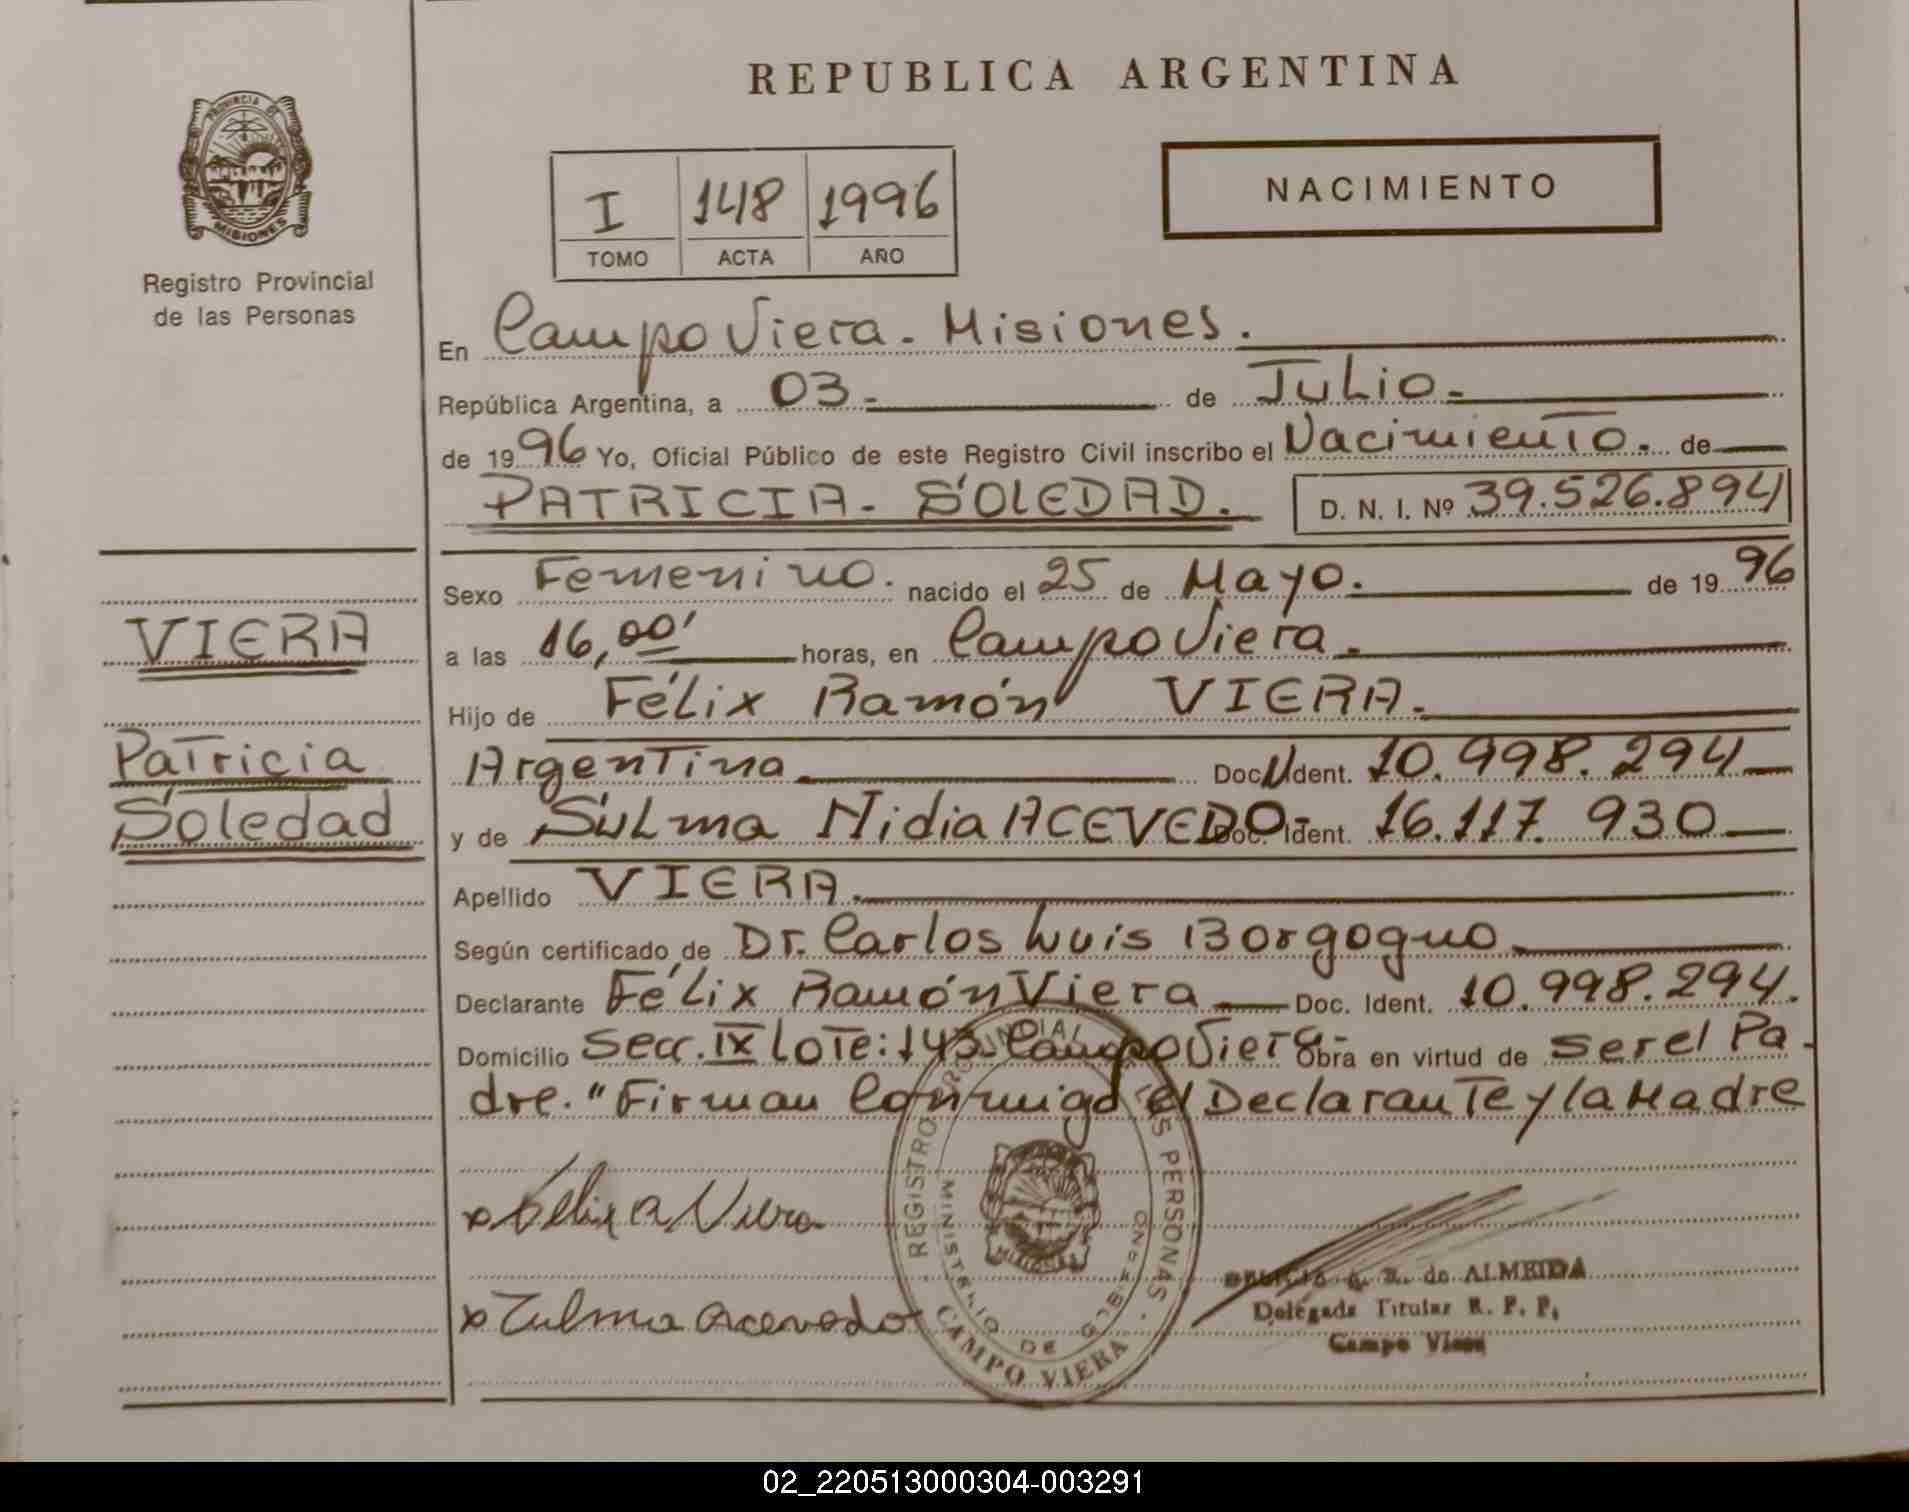 REPUBLICA ARGENTINA
PROVINCIA DE
MISIONES
Registro Provincial
de las Personas
I 148 1996
TOMO ACTA AÑO
NACIMIENTO
En Campo Viera - Misiones.
República Argentina, a 03 - de Julio -
de 1996 Yo, Oficial Público de este Registro Civil inscribo el Nacimiento. de
PATRICIA - SOLEDAD. D. N. I. Nº 39.526.894
Sexo Femenino. nacido el 25 de Mayo. de 1996
VIERA
a las 16,00' horas, en Campo Viera.
Hijo de Félix Ramón VIERA.
Patricia
Soledad
Argentina Doc. Ident. 10.998.294
y de Sulma Nidia ACEVEDO - Doc. Ident. 16.117.930
Apellido VIERA.
Según certificado de Dr. Carlos Luis Borgogno
Declarante Félix Ramón Viera Doc. Ident. 10.998.294.
Domicilio Secc. IX Lote: 143 - Campo Viera - Obra en virtud de ser el Pa-
dre. "Firman Conmigo el Declarante y la Madre
x Felix R Viera
x Zulma Acevedo
REGISTRO PROVINCIAL DE LAS PERSONAS
MINISTERIO DE GOBIERNO
MISIONES
CAMPO VIERA
de ALMEIDA
Delegada Titular R. P. P.
Campo Viera
02_220513000304-003291